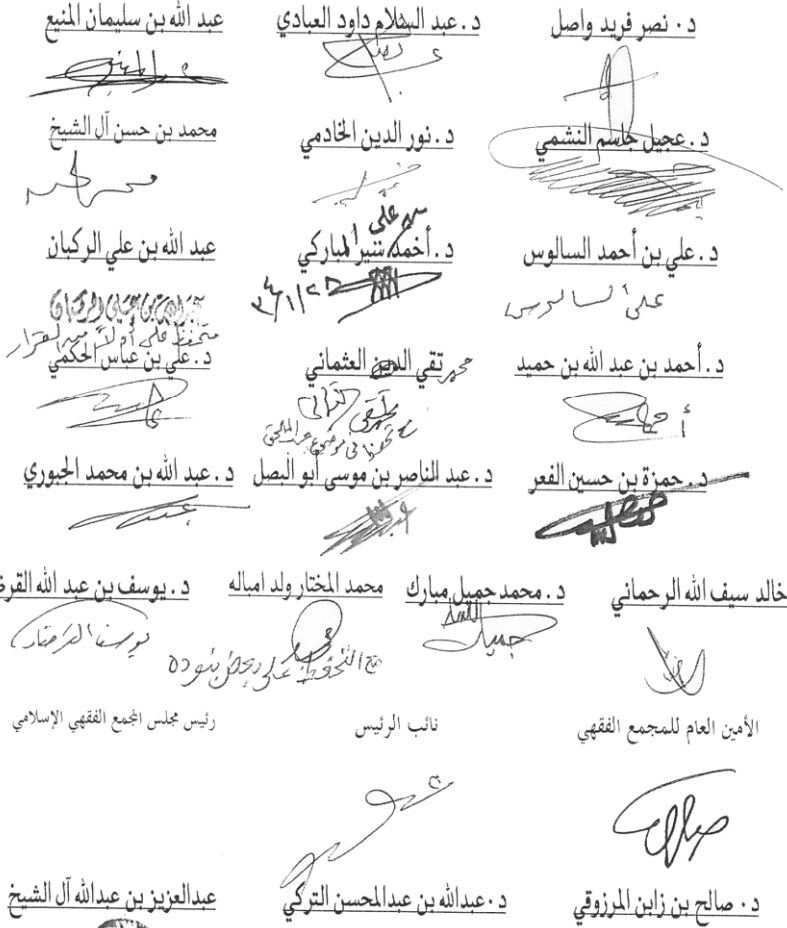 د. نصر فريد واصل د. عبد السلام داود العبادي عبد الله بن سليمان المنيع
د. عجيل جاسم النشمي د. نور الدين الخادمي محمد بن حسن آل الشيخ
د. علي بن أحمد السالوس د. أحمد سير المباركي عبد الله بن علي الركبان
علي السالوس
متحفظ على أولاً من القرار
د. أحمد بن عبد الله بن حميد محمد تقي الدين العثماني د. علي بن عباس الحكمي
د. حمزة بن حسين الفعر د. عبد الناصر بن موسى أبو البصل د. عبد الله بن محمد الجبوري
خالد سيف الله الرحماني د. محمد جميل مبارك محمد المختار ولد امباله د. يوسف بن عبد الله القرض
جميل
مع التحفظ على بعض بنوده
الأمين العام للمجمع الفقهي نائب الرئيس رئيس مجلس المجمع الفقهي الإسلامي
د. صالح بن زابن المرزوقي د. عبدالله بن عبدالمحسن التركي عبدالعزيز بن عبدالله آل الشيخ